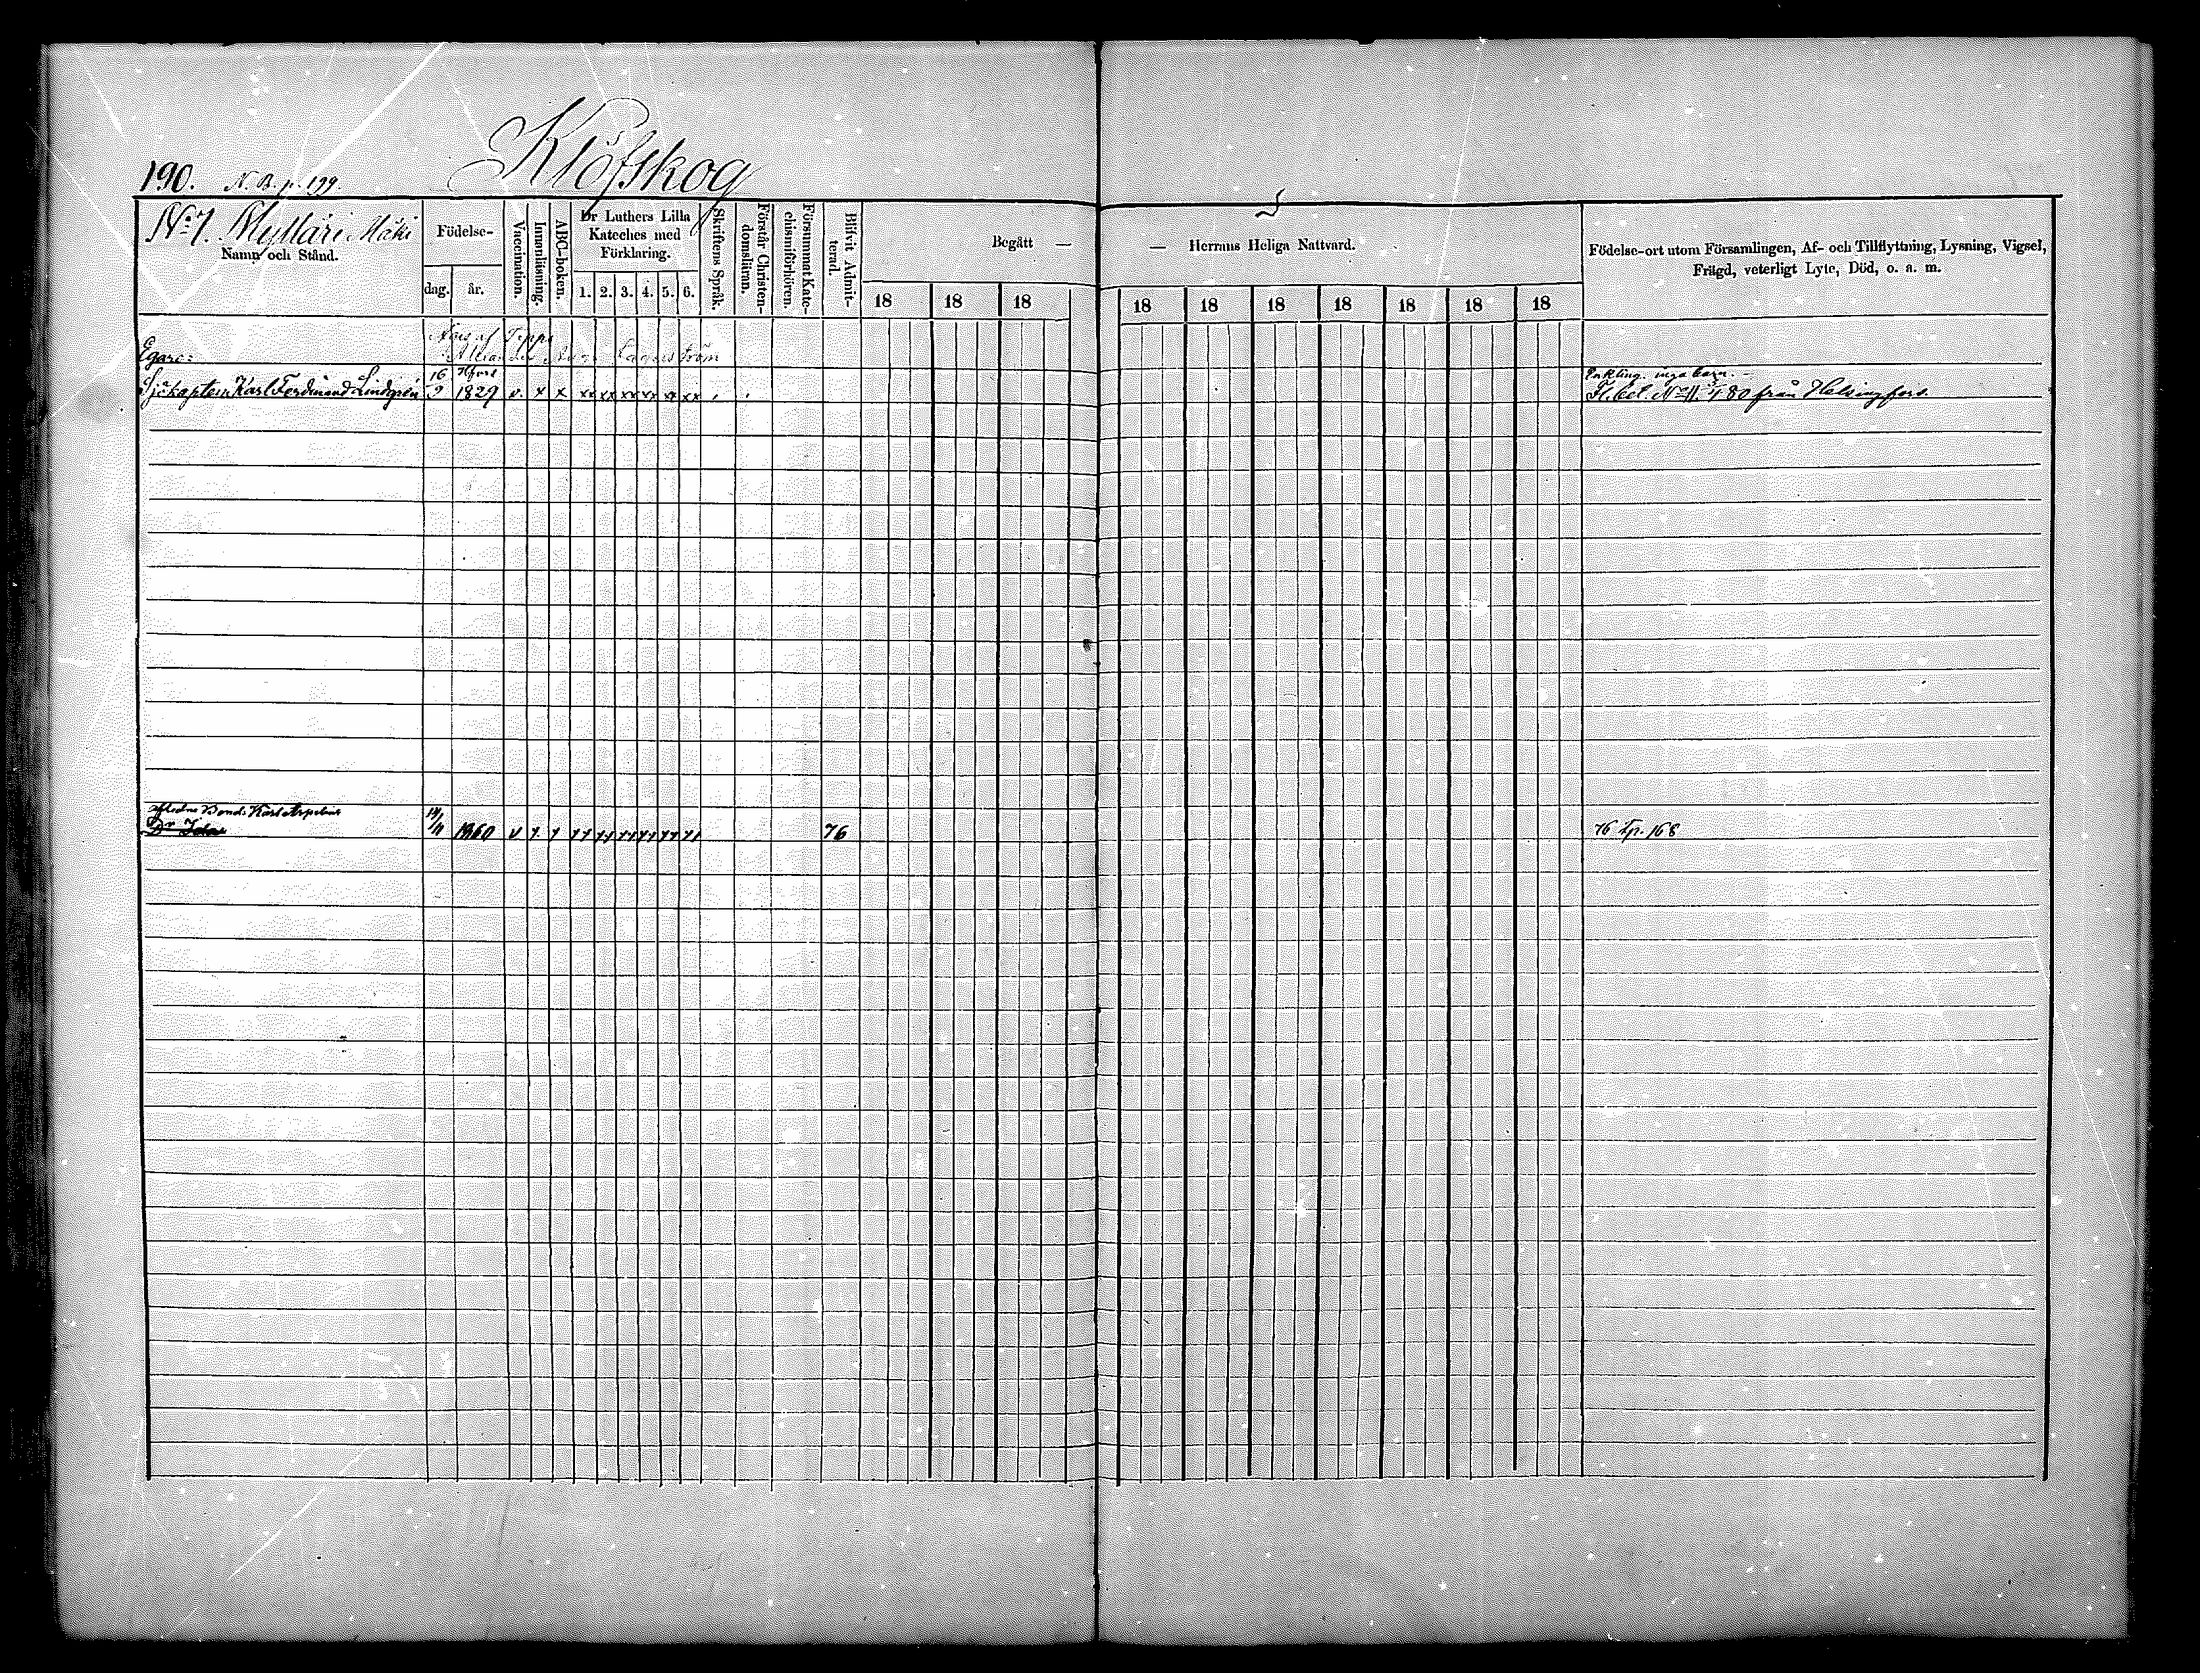 190. N.B. p. 199. Klöfskog
No 7. Mylläri Mäki
Namn och Stånd.
Födelse-
dag. år.
Vaccination.
Innanläsning.
ABC-boken.
Dr Luthers Lilla
Kateches med
Förklaring.
1. 2. 3. 4. 5. 6.
Skriftens Språk.
Förstår Christen-
domsläran.
Försummat Kate-
chismiförhören.
Blifvit Admit-
terad.
Begått —
18 18 18
— Herrans Heliga Nattvard.
18 18 18 18 18 18 18
Födelse-ort utom Församlingen, Af- och Tillflyttning, Lysning, Vigsel,
Frägd, veterligt Lyte, Död, o. a. m.
af
Lagerström
Egare:
16 Hfors Enkling. inga barn. —
Sjökapten Karl Ferdinand Lindgrén 9 1829 v. x x xx xx xx xx xx xx Fl. bet. No 11 80 från Helsingfors.
Bond. Karl
Dr Ida 1860 v 76 76 Tp. 168